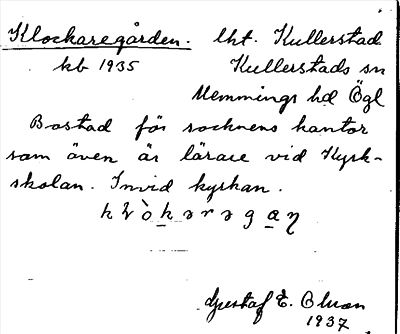 Klockaregården. lht. Kullerstad
kb 1935 Kullerstads sn
Memmings hd Ögl
Bostad för socknens kantor
som även är lärare vid Kyrk-
skolan. Invid kyrkan.
Gustaf E.
1937